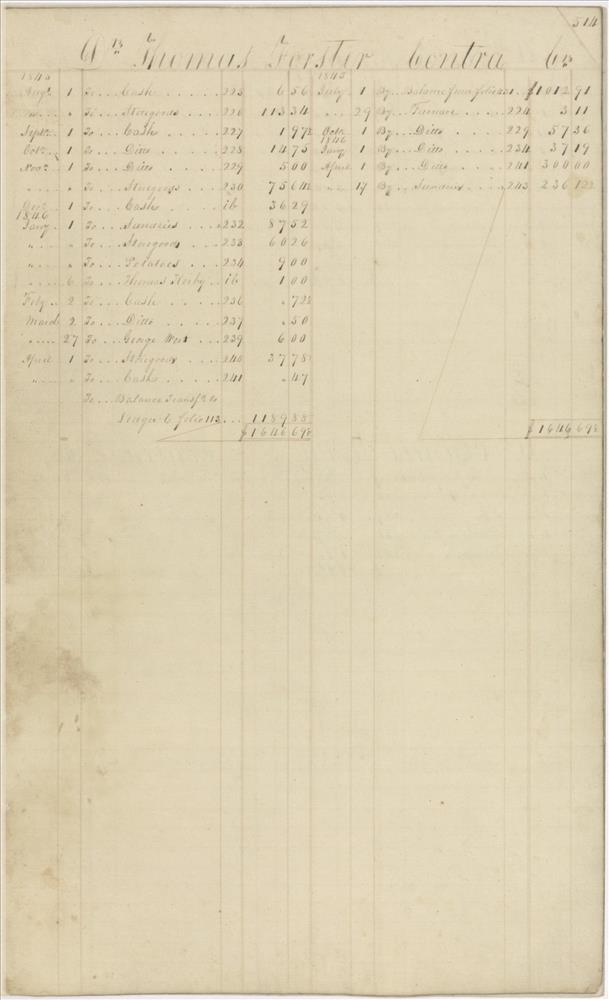 514
Drs. Thomas Forster Contra Cr.
1845 1845
Augt. 1 To .. Cash ..... 225 6 56 July 1 By .. Balance from folio 231 .. $1012 91
" .. " To .. Storegoods ... 226 113 34 " .. 29 By .. Furnace ... 224 3 11
Septr. 1 To .. Cash ..... 227 1 97½ Octr. 1 By .. Ditto .. 229 57 36
Octr. 1 To .. Ditto ..... 228 14 75 1846 Jany. 1 By .. Ditto .. 234 37 19
Novr. 1 To .. Ditto ..... 229 5 00 April 1 By .. Ditto .. 241 300 00
" .. " To .. Storegoods .... 230 75 64½ " .. 17 By .. Sundries .... 243 236 12½
Decr. 1 To .. Cash .. ib 36 29
1846
Jany. 1 To .. Sundries .. 232 87 52
" .. " To .. Storegoods .. 233 60 26
" .. " To .. Potatoes .. 234 9 00
" .. 6 To .. Thomas .. ib 1 00
Feby. 2 To .. Cash .... 236 " 72½
March 2 To .. Ditto .... 237 " 50
" .. 27 To .. George West .. 239 6 00
April 1 To .. Storegoods ... 240 37 78
" .. " To .. Cash ..... 241 " 47
To .. Balance Transfd. to
Leager C folio 113 ... 1189 88
$1646 69½ $1646 69½